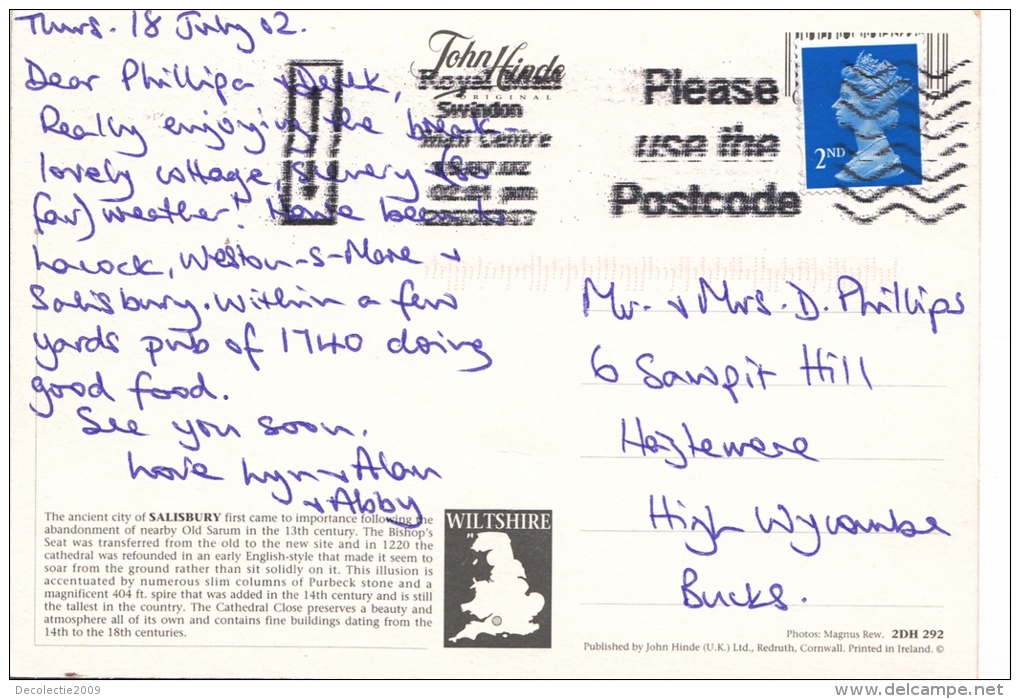 Thurs. 18 July 02.
Dear Phillipa + Derek,
Really enjoying the break -
lovely cottage, scenery + (so
far) weather!! Have been to
Lacock, Weston-S-Mare +
Salisbury. Within a few
yards pub of 1740 doing
good food.
See you soon.
Love Lyn + Alan
+ Abby
The ancient city of SALISBURY first came to importance following the
abandonment of nearby Old Sarum in the 13th century. The Bishop's
Seat was transferred from the old to the new site and in 1220 the
cathedral was refounded in an early English-style that made it seem to
soar from the ground rather than sit solidly on it. This illusion is
accentuated by numerous slim columns of Purbeck stone and a
magnificent 404 ft. spire that was added in the 14th century and is still
the tallest in the country. The Cathedral Close preserves a beauty and
atmosphere all of its own and contains fine buildings dating from the
14th to the 18th centuries.
WILTSHIRE
John Hinde
ORIGINAL
Royal Mail
Swindon
Mail Centre
Please
use the
Postcode
2ND
Mr. + Mrs. D. Phillips
6 Sawpit Hill
Hazlemere
High Wycombe
Bucks.
Photos: Magnus Rew. 2DH 292
Published by John Hinde (U.K.) Ltd., Redruth, Cornwall. Printed in Ireland. ©
Decolectie2009
delcampe.net